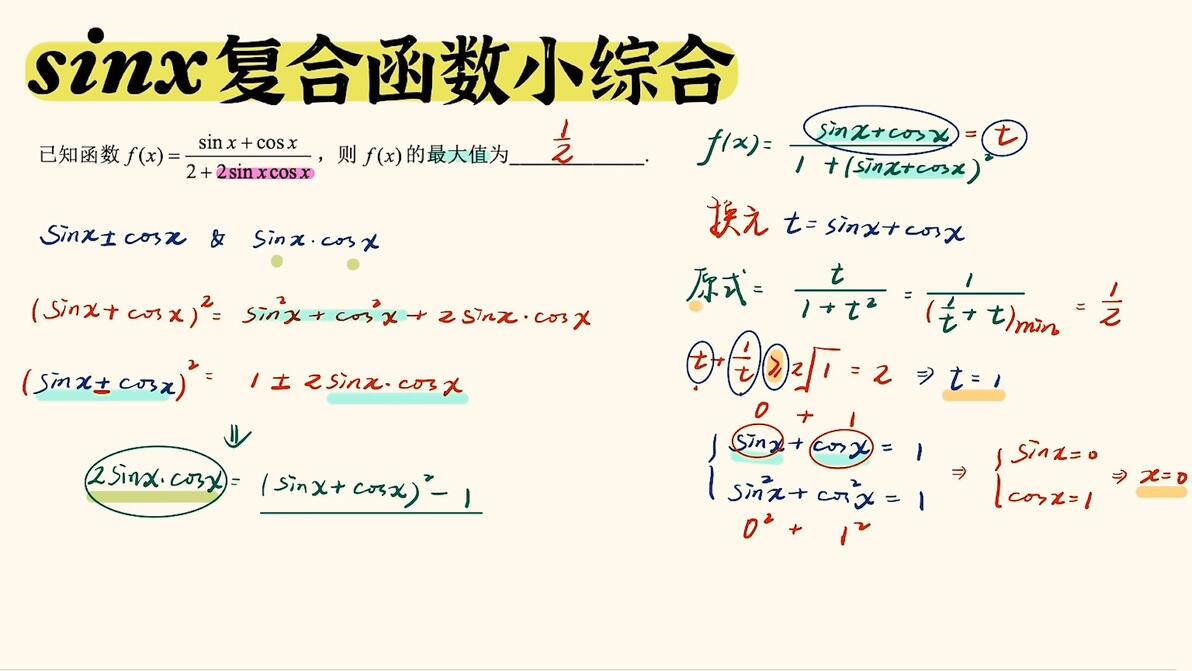 sinx复合函数小综合
已知函数 f(x) = \frac{sin x + cos x}{2 + 2sin x cos x}，则 f(x) 的最大值为 \frac{1}{2} .
sinx ± cosx & sinx·cosx
(sinx + cosx)² = sin²x + cos²x + 2sinx·cosx
(sinx ± cosx)² = 1 ± 2sinx·cosx
⇓
2sinx·cosx = (sinx + cosx)² - 1
f(x) = \frac{sinx + cosx}{1 + (sinx + cosx)²} = t
换元 t = sinx + cosx
原式 = \frac{t}{1 + t²} = \frac{1}{(\frac{1}{t} + t)min} = \frac{1}{2}
t + \frac{1}{t} ≥ 2√1 = 2 ⇒ t = 1
0 + 1
{ sinx + cosx = 1
{ sin²x + cos²x = 1 ⇒ { sinx = 0
{ cosx = 1 ⇒ x = 0
0² + 1²